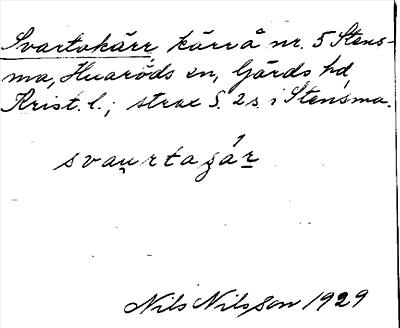 Svartakärr, kärr å nr. 5 Stens-
ma, Huaröds sn, Gärds hd,
Krist. l.; strax S. 2 s. i Stensma.
svau̯rtagár
Nils Nilsson 1929